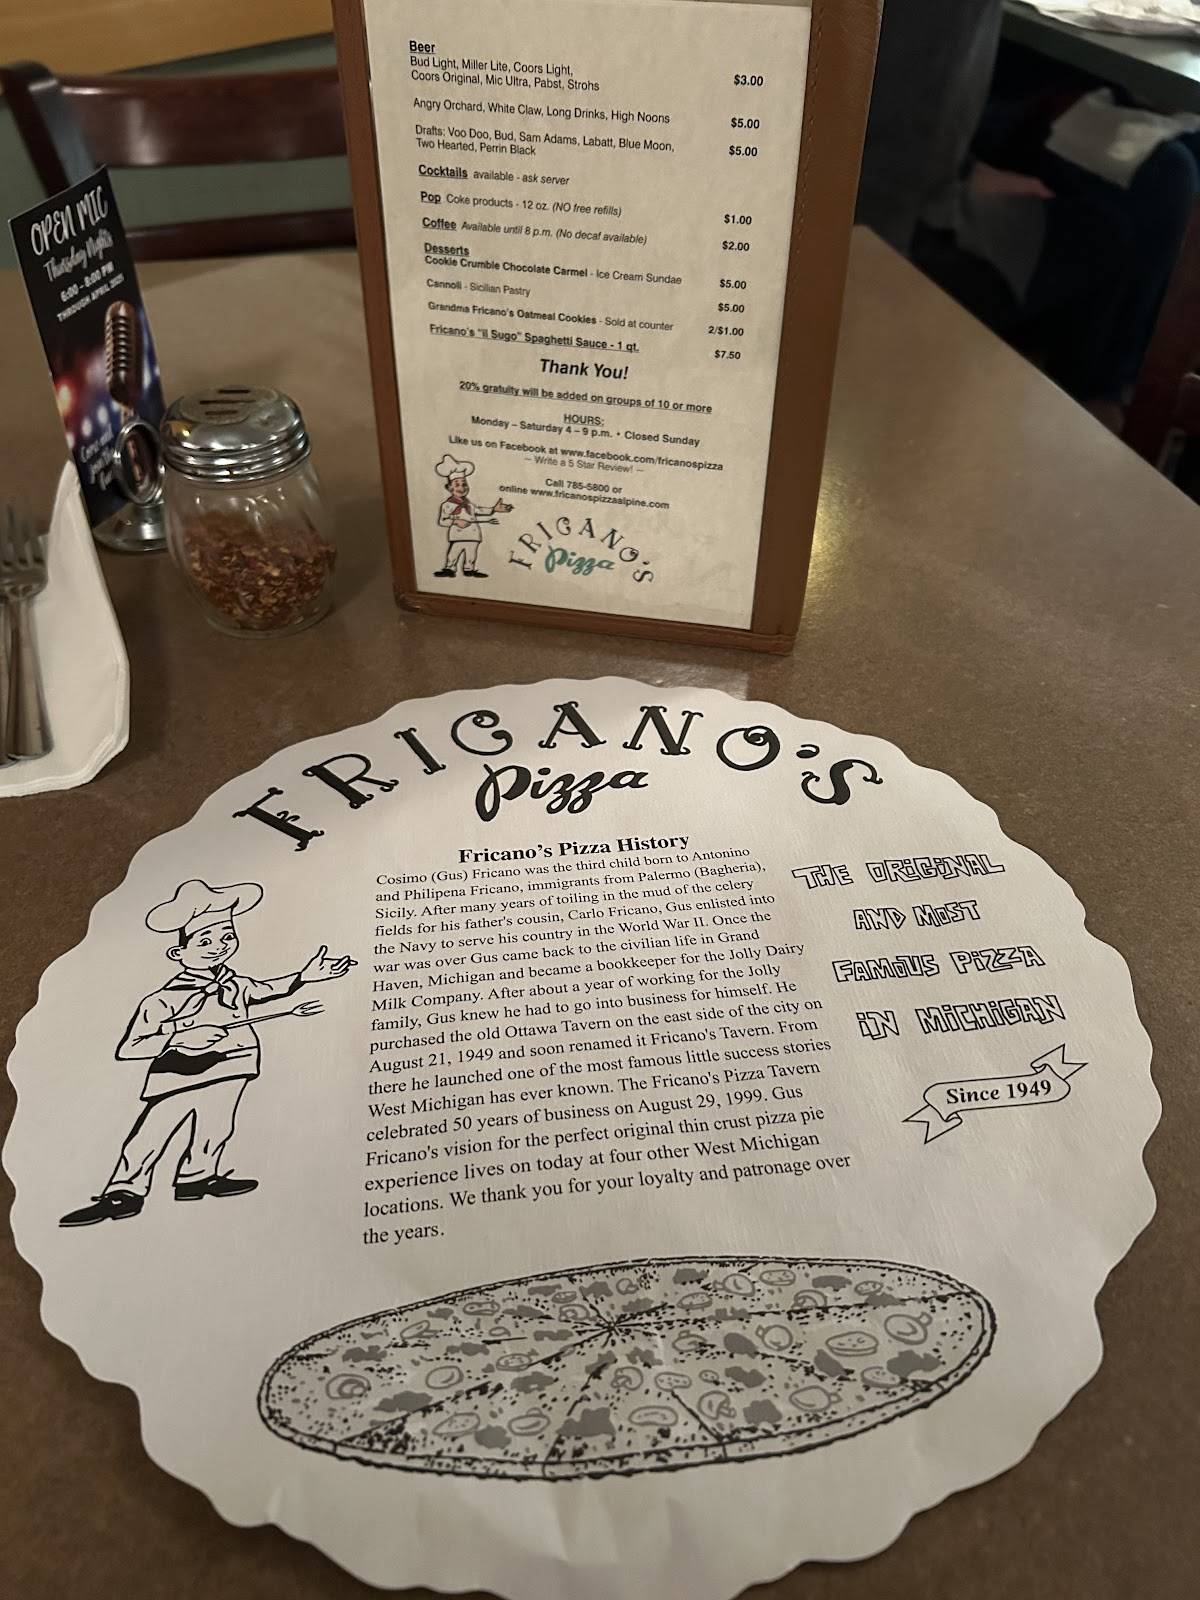 Beer
Bud Light, Miller Lite, Coors Light,
Coors Original, Mic Ultra, Pabst, Strohs $3.00
Angry Orchard, White Claw, Long Drinks, High Noons $5.00
Drafts: Voo Doo, Bud, Sam Adams, Labatt, Blue Moon,
Two Hearted, Perrin Black $5.00
Cocktails available - ask server
Pop Coke products - 12 oz. (NO free refills) $1.00
Coffee Available until 8 p.m. (No decaf available) $2.00
Desserts
Cookie Crumble Chocolate Carmel - Ice Cream Sundae $5.00
Cannoli - Sicilian Pastry $5.00
Grandma Fricano's Oatmeal Cookies - Sold at counter 2/$1.00
Fricano's "il Sugo" Spaghetti Sauce - 1 qt. $7.50
Thank You!
20% gratuity will be added on groups of 10 or more
HOURS:
Monday – Saturday 4 – 9 p.m. • Closed Sunday
Like us on Facebook at www.facebook.com/fricanospizza
— Write a 5 Star Review! —
Call 785-5800 or
online www.fricanospizzaalpine.com
FRICANO'S
Pizza
OPEN MIC
Thursday Nights
6:00 - 8:00 PM
THROUGH APRIL 2025
FRICANO'S
Pizza
Fricano's Pizza History
Cosimo (Gus) Fricano was the third child born to Antonino
and Philipena Fricano, immigrants from Palermo (Bagheria),
Sicily. After many years of toiling in the mud of the celery
fields for his father's cousin, Carlo Fricano, Gus enlisted into
the Navy to serve his country in the World War II. Once the
war was over Gus came back to the civilian life in Grand
Haven, Michigan and became a bookkeeper for the Jolly Dairy
Milk Company. After about a year of working for the Jolly
family, Gus knew he had to go into business for himself. He
purchased the old Ottawa Tavern on the east side of the city on
August 21, 1949 and soon renamed it Fricano's Tavern. From
there he launched one of the most famous little success stories
West Michigan has ever known. The Fricano's Pizza Tavern
celebrated 50 years of business on August 29, 1999. Gus
Fricano's vision for the perfect original thin crust pizza pie
experience lives on today at four other West Michigan
locations. We thank you for your loyalty and patronage over
the years.
THE ORIGINAL
AND MOST
FAMOUS PIZZA
IN MICHIGAN
Since 1949